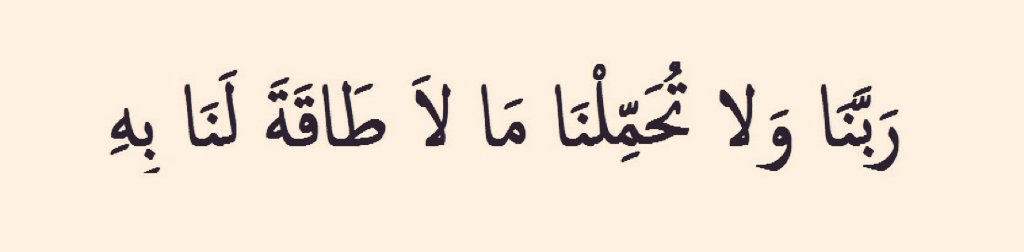 رَبَّنَا وَلا تُحَمِّلْنَا مَا لاَ طَاقَةَ لَنَا بِهِ